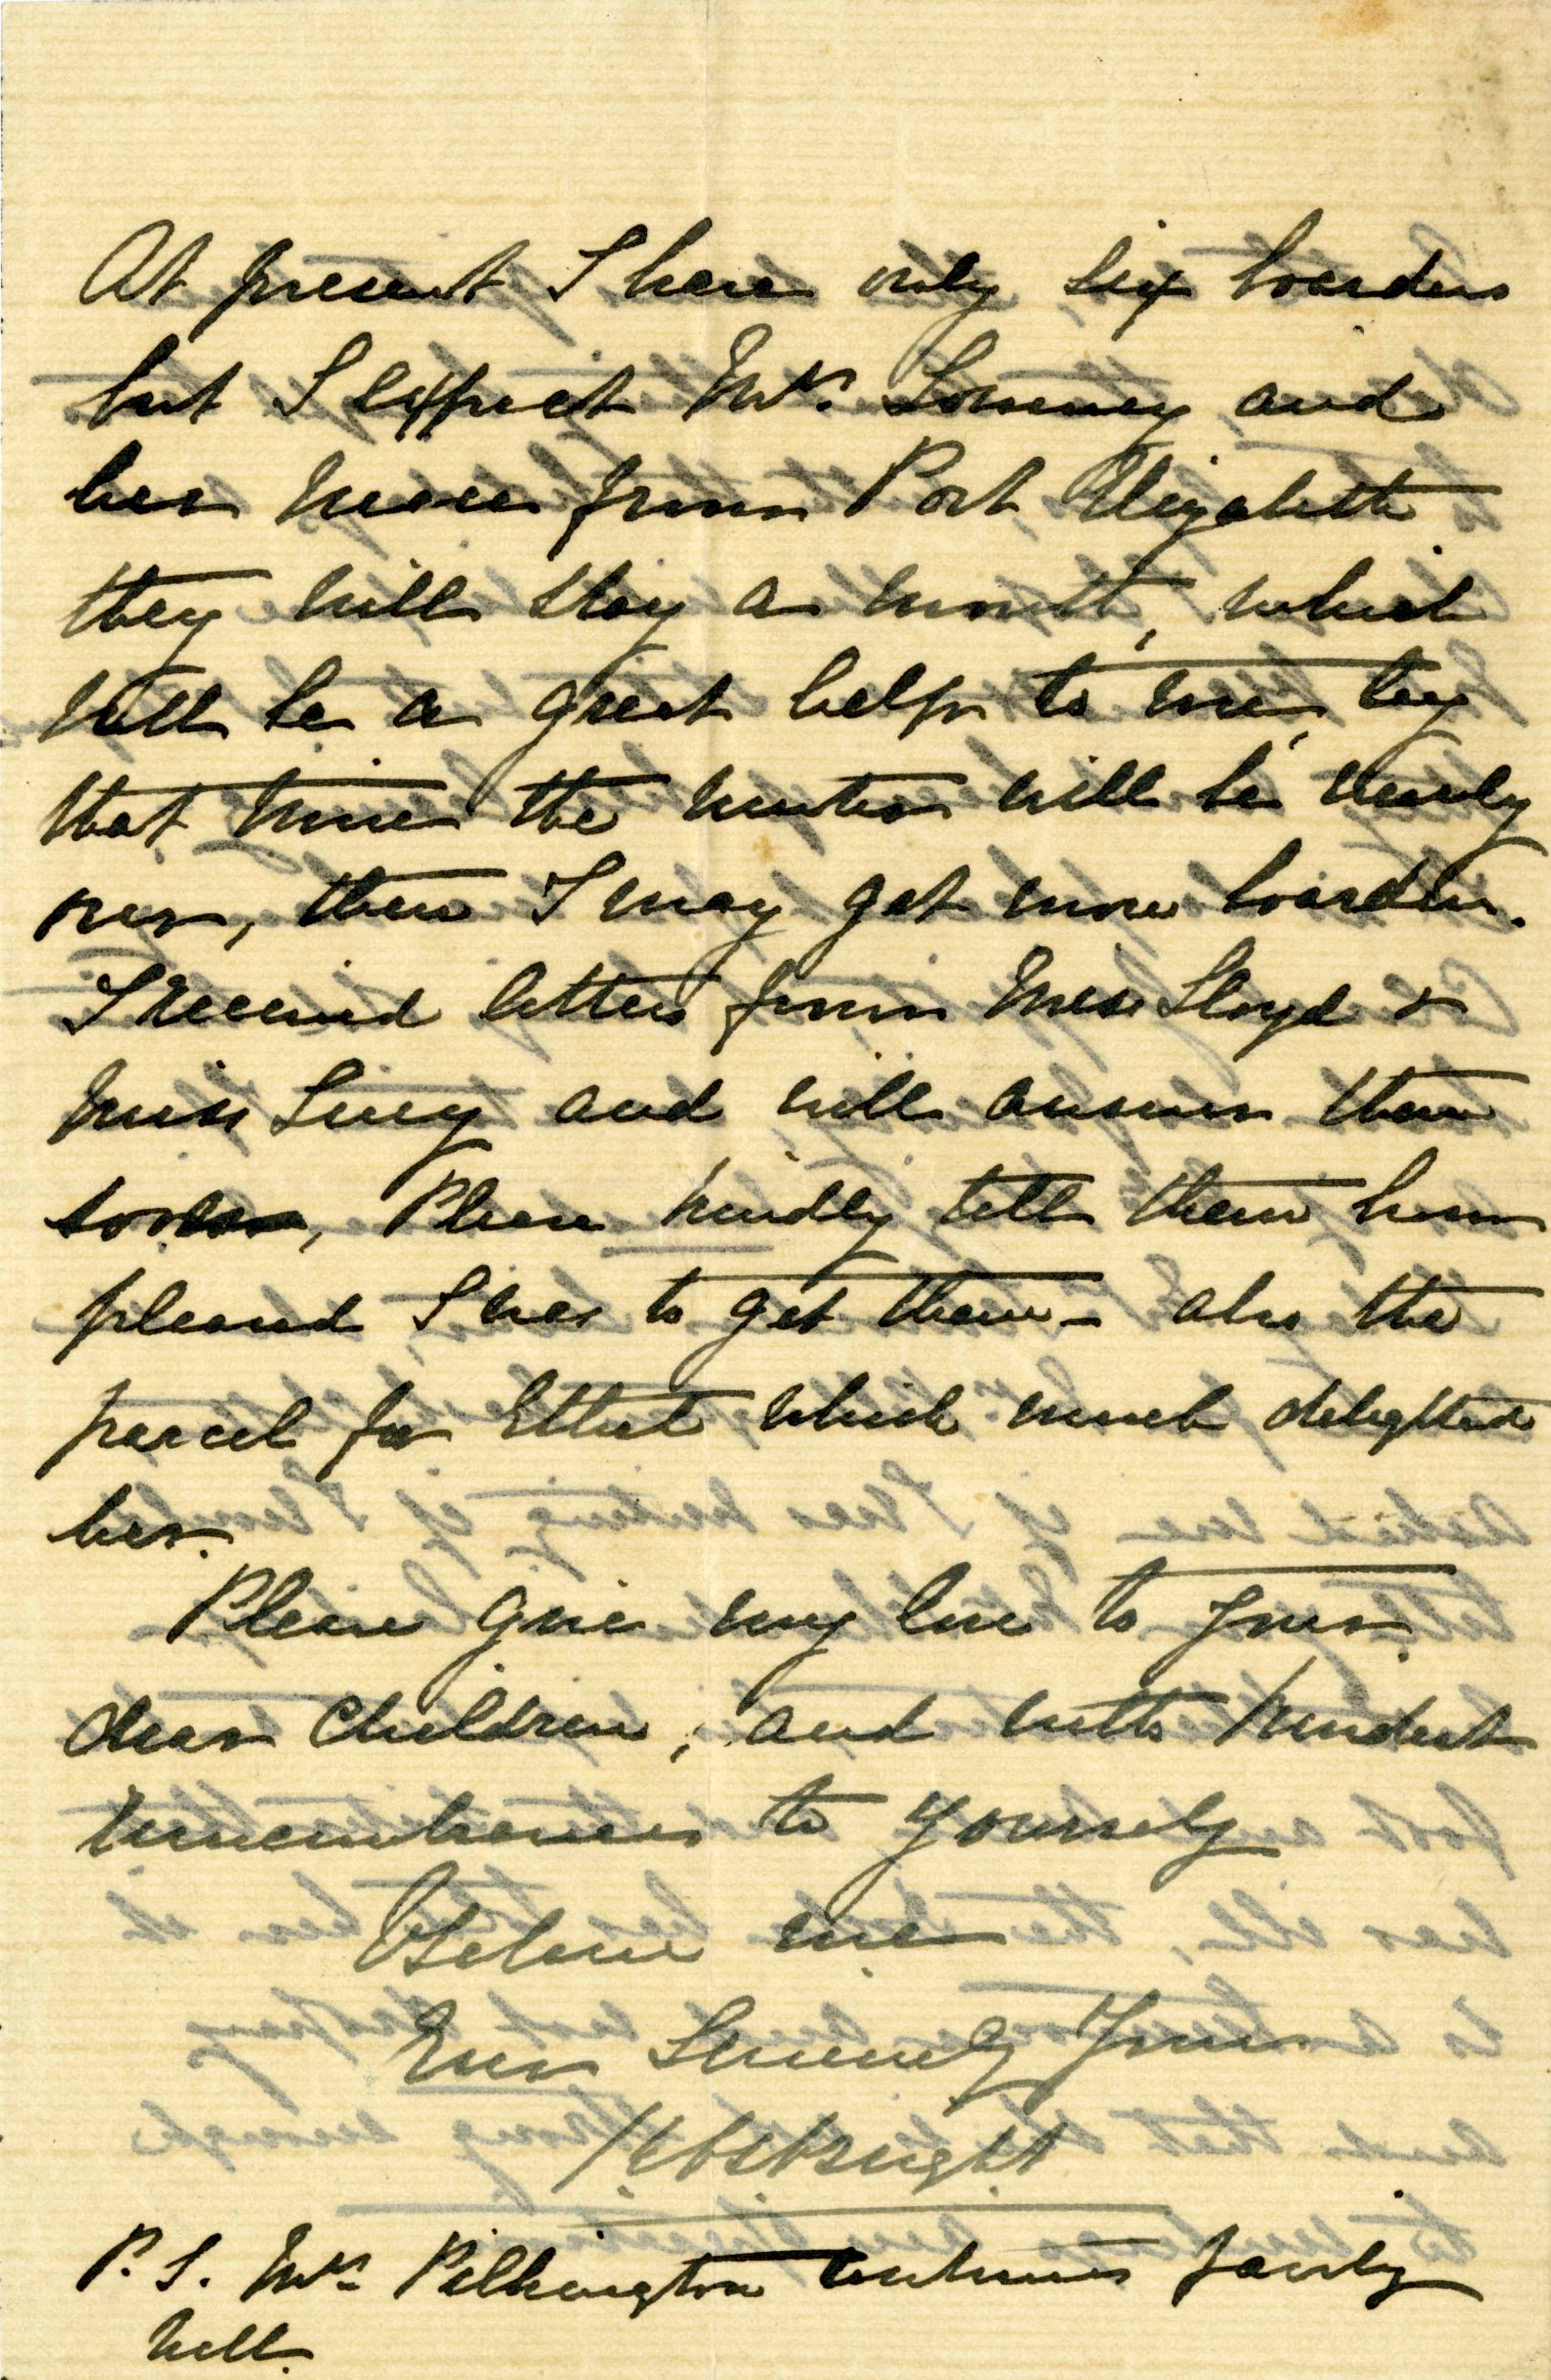 At present I have only six boarders
but I expect Mrs. Loney and
her niece from Port Elizabeth
they will stay a month, which
will be a great help to me, by
that time the winter will be nearly
over, then I may get more boarders.
I received letters from Miss Lloyd &
Miss Lucy and will answer them
soon, Please kindly tell them how
pleased I was to get them – also the
parcel for Ethel which much delighted
her.
Please give my love to your
dear children, and with kindest
remembrances to yourself
Believe me
Ever Sincerely Yours
P.S. Mrs Pilkington continues fairly
well.